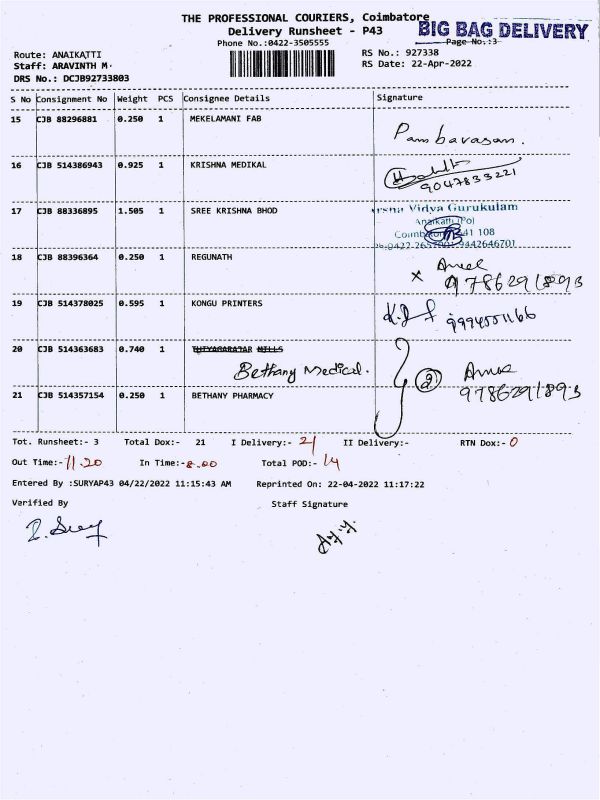 THE PROFESSIONAL COURIERS, Coimbatore
Delivery Runsheet - P43
BIG BAG DELIVERY
Phone No.:0422-3505555
Page No.:3
Route: ANAIKATTI
RS No.: 927338
Staff: ARAVINTH M.
RS Date: 22-Apr-2022
DRS No.: DCJB92733803
S No Consignment No Weight PCS Consignee Details Signature
15 CJB 88296881 0.250 1 MEKELAMANI FAB
16 CJB 514386943 0.925 1 KRISHNA MEDIKAL
9047833221
17 CJB 88336895 1.505 1 SREE KRISHNA BHOD
Vidya Gurukulam
Anaikatti (Po)
641 108
9442646701
18 CJB 88396364 0.250 1 REGUNATH
x 9786291893
19 CJB 514378025 0.595 1 KONGU PRINTERS
9994551166
20 CJB 514363683 0.740 1 THIYAGARAJAR MILLS
Bethany Medical.
2
9786291893
21 CJB 514357154 0.250 1 BETHANY PHARMACY
Tot. Runsheet:- 3 Total Dox:- 21 I Delivery:- 21 II Delivery:- RTN Dox:- 0
Out Time:- 11.20 In Time:- 8.00 Total POD:- 14
Entered By :SURYAP43 04/22/2022 11:15:43 AM Reprinted On: 22-04-2022 11:17:22
Verified By Staff Signature